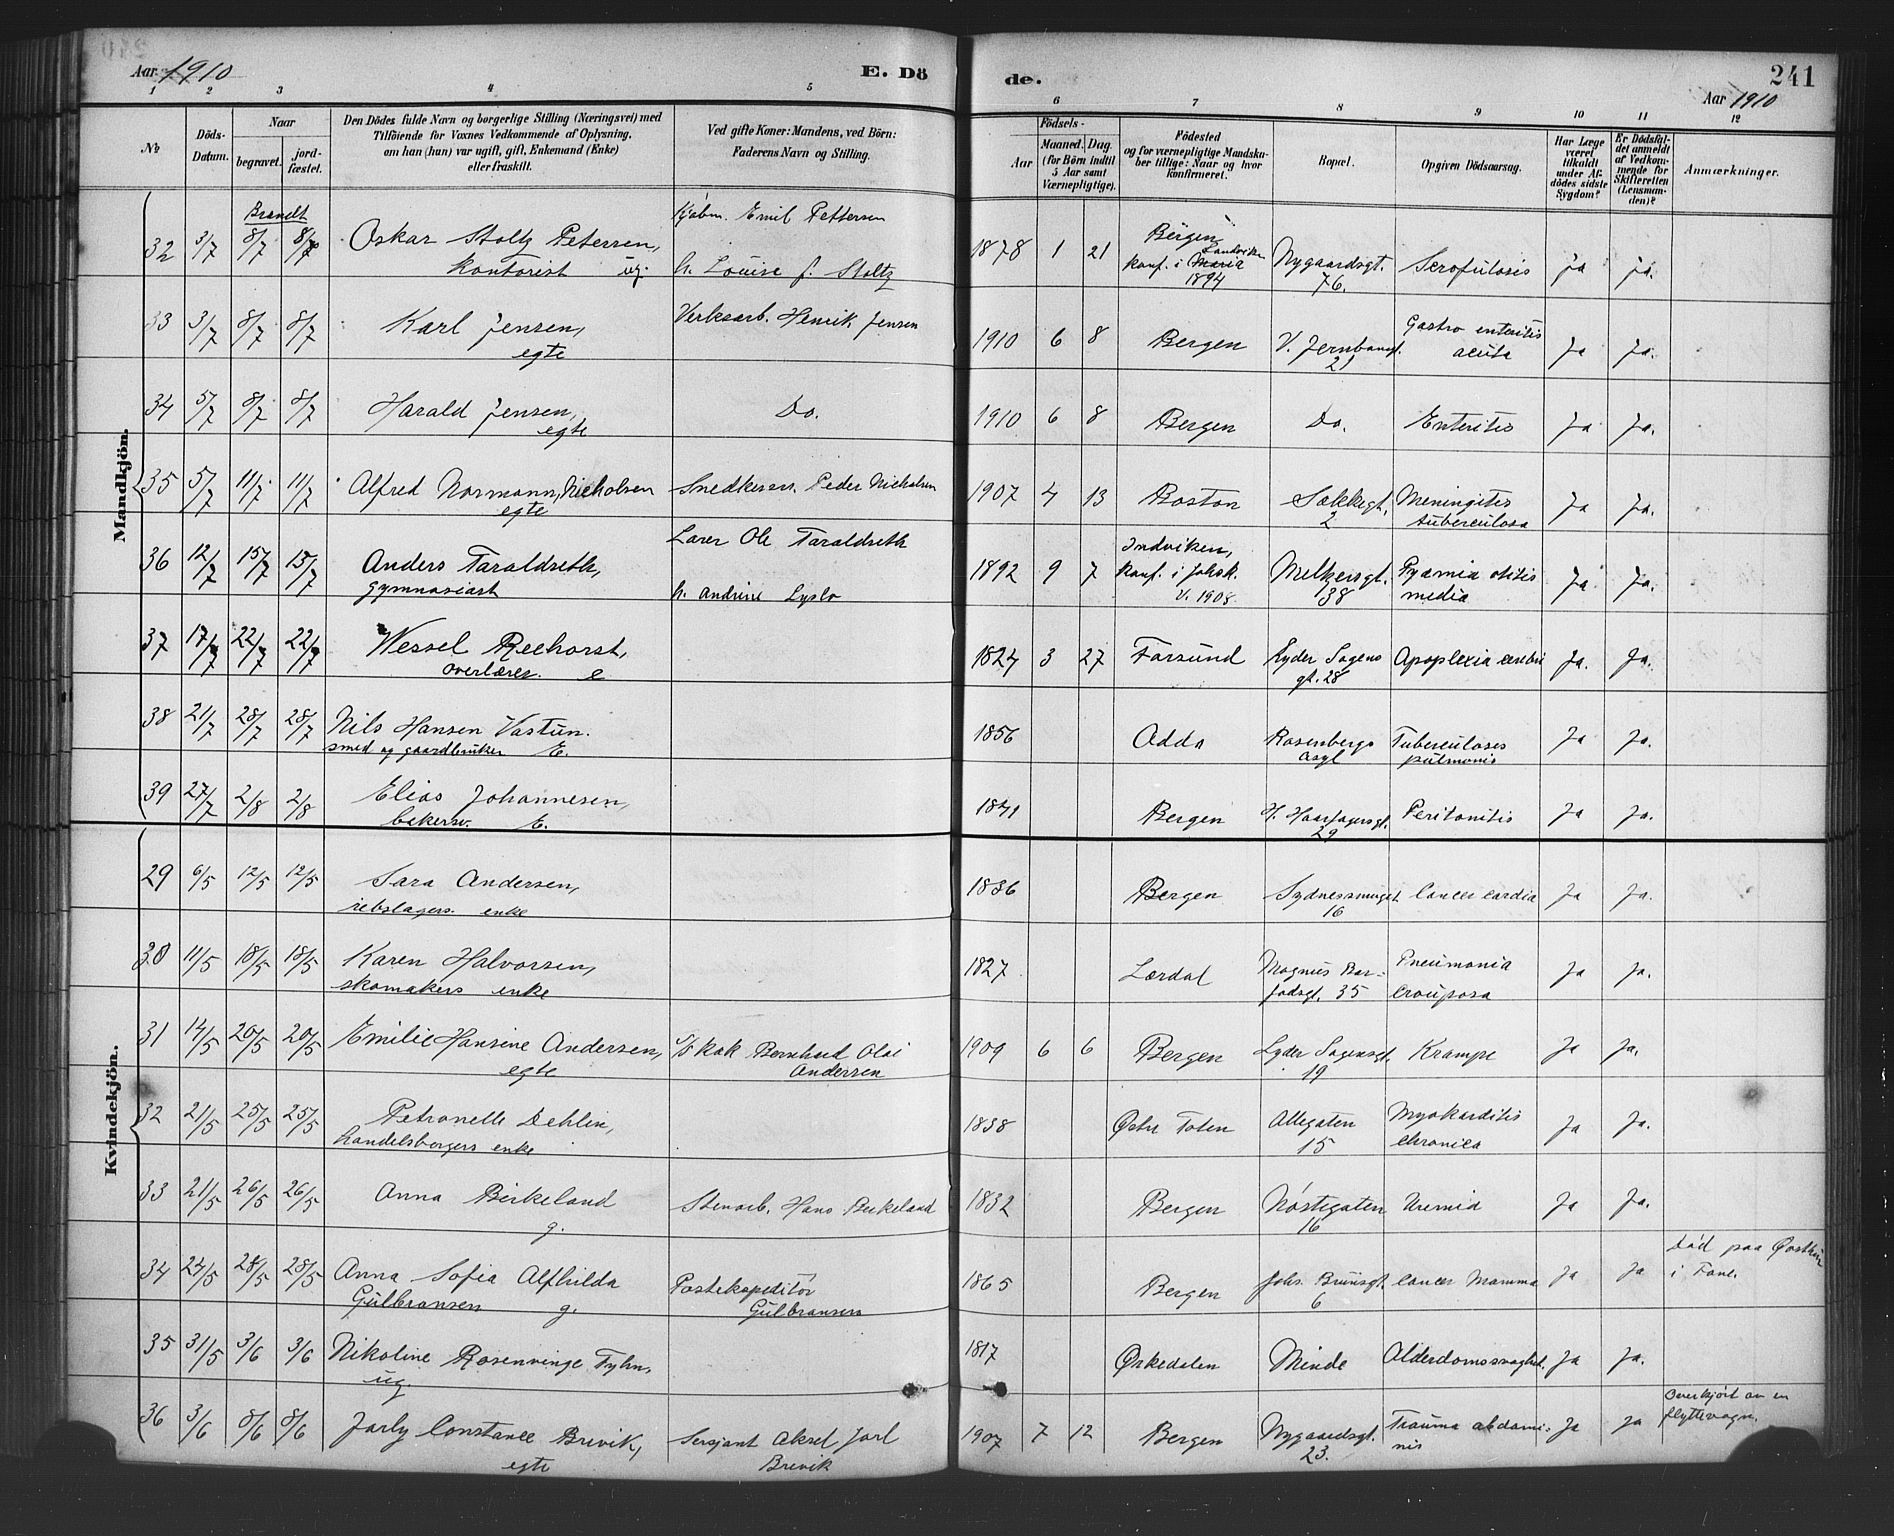 Aar 1910
E. Dö
de.
241
Aar 1910
1 2 3 4 5 6 7 8 9 10 11 12
No
Döds-Datum.
Naar
begravet.
jord-fæstet.
Den Dödes fulde Navn og borgerlige Stilling (Næringsvei) med
Tilföiende for Voxnes Vedkommende af Oplysning,
om han (hun) var ugift, gift, Enkemand (Enke)
eller fraskilt.
Ved gifte Koner: Mandens, ved Börn:
Faderens Navn og Stilling.
Födsels-
Aar
Maaned. Dag.
(for Börn indtil
5 Aar samt
Værnepligtige).
Födested
og for værnepligtige Mandskaber tillige: Naar og hvor
Konfirmeret.
Bopæl.
Opgiven Dödsaarsag.
Har Læge
været
tilkaldt
under Afdödes sidste
Sygdom?
Er Dödsfaldet anmeldt
af Vedkommende for
Skifteretten
(Lensmanden)?
Anmærkninger.
Mandkjön.
Brandt
32 3/7 8/7 8/7 Oskar Stoltz Petersen, kontorist ug. Kjøbm. Emil Pettersen h. Louise f. Stoltz 1878 1 21 Bergen konf. i Sandviken 1894 Nygaardsgt. 76. Scrofulosis ja ja.
33 3/7 8/7 8/7 Karl Jensen, egte Verksarb. Henrik Jensen 1910 6 8 Bergen V. Jernbanegt. 21 Gastro enteritis acuta Ja Ja.
34 5/7 8/7 8/7 Harald Jensen, egte Do. 1910 6 8 Bergen Do. Enteritis Ja Ja.
35 5/7 11/7 11/7 Alfred Normann Nicholsen egte Snedkersv. Peder Nicholsen 1907 4 13 Boston Sækkegt. 2 Meningitis tuberculosa Ja Ja.
36 12/7 15/7 15/7 Anders Taraldseth, gymnasiast Lærer Ole Taraldseth h. Andrine Lyslo 1892 9 7 Indviken, konf. i Johsk. V. 1908. Melkersgt. 38 Pyæmia otitis media Ja Ja.
37 17/7 22/7 22/7 Wessel Reehorst, overlærer. e 1824 3 27 Farsund Lyder Sagens gt. 28 Apoplexia cerebri Ja. Ja.
38 21/7 28/7 28/7 Nils Hansen Vastun. smed og gaardbruker E. 1856 Odda Rosenbergs Asyl Tuberculoses pulmonis Ja Ja.
39 27/7 2/8 2/8 Elias Johannesen, bakersv. E. 1841 Bergen H. Haarfagersgt. 29 Peritonitis Ja Ja.
Kvindekjön.
29 6/5 12/5 12/5 Sara Andersen, rebslagers enke 1836 Bergen Sydnessmuget 16 Cancer cardia Ja Ja.
30 11/5 18/5 18/5 Karen Halvorsen, skomakers enke 1827 Lærdal Magnus Barfodsgt. 35 Pneumonia crouposa Ja Ja.
31 14/5 20/5 20/5 Emilie Hansine Andersen, egte Kok Bernhard Olai Andersen 1909 6 6 Bergen Lyder Sagensgt. 19 Krampe Ja Ja.
32 21/5 25/5 25/5 Petronelle Dehlin, handelsborgers enke 1838 Østre Toten Allegaten 15 Myokarditis chronica Ja Ja.
33 21/5 26/5 26/5 Anna Birkeland g. Stenarb. Hans Birkeland 1832 Bergen Nøstegaten 16 Uremia Ja Ja.
34 24/5 28/5 28/5 Anna Sofia Alfhilda Gulbransen g. Postekspeditör Gulbransen 1865 Bergen Johs. Brunsgt. 6 Cancer Mamma Ja Ja Død paa i Fane.
35 31/5 3/6 3/6 Nikoline Rosenvinge Tyhn, ug 1817 Ørkedalen Minde Alderdomssvaghet. Ja Ja.
36 3/6 8/6 8/6 Jarly Constance Brevik, egte Sersjant Aksel Jarl Brevik 1907 7 12 Bergen Nygaardsgt. 23. Trauma abdominis Ja Ja Overkjørt av en flyttevogn.